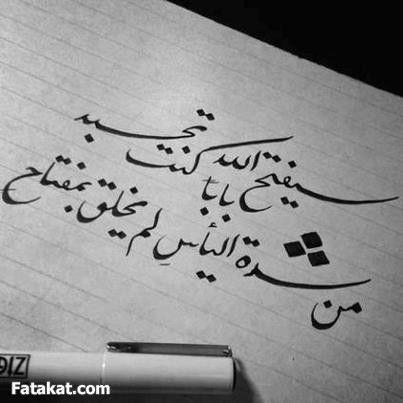 سيفتح الله بابا كنت تحسبه
من شدة اليأس لم يخلق بمفتاح
ZIG
Fatakat.com